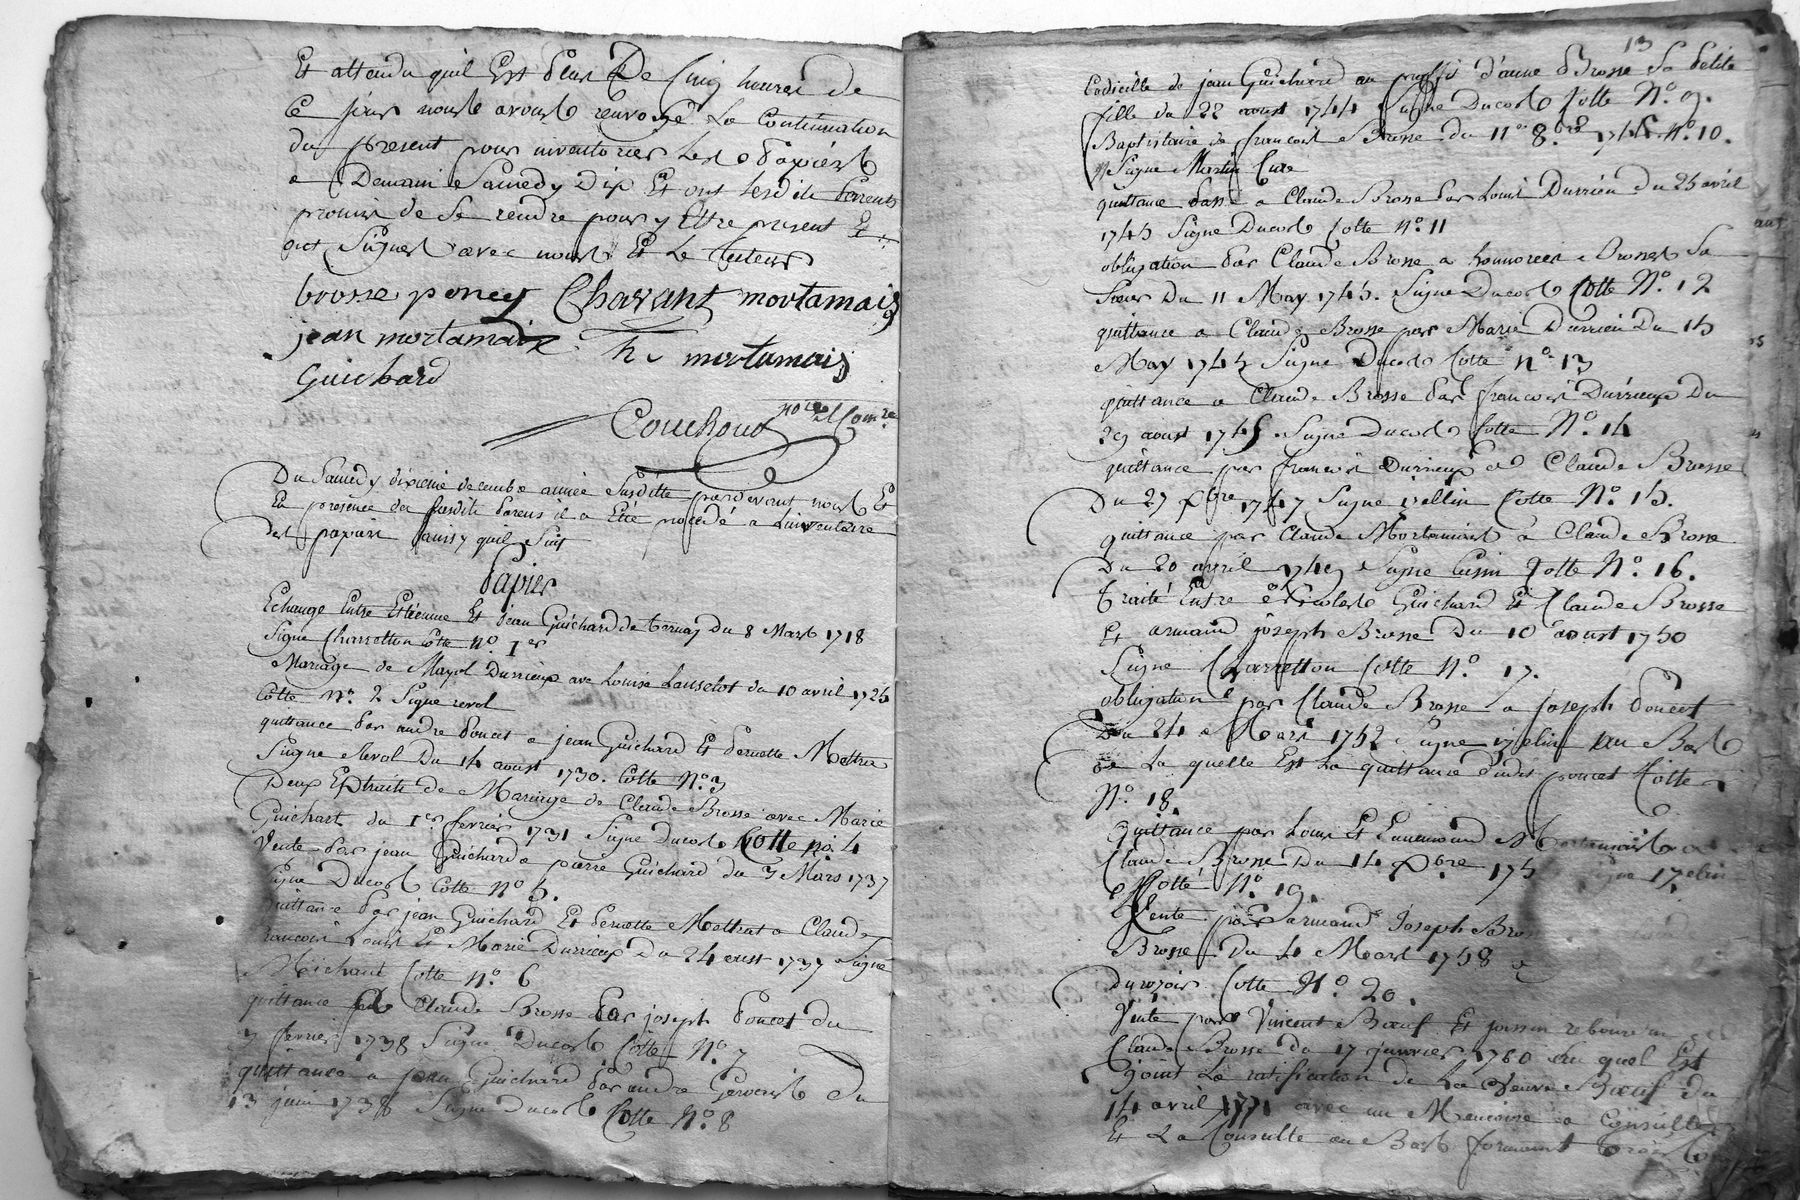 Et attendu quil Est plus De Cinq heures de
Ce jour nous avons renvoyé La Continuation
du present pour inventorier Les papiers
a Demain Samedy Dix Et ont lesdits parents
promis de Se rendre pour y Ettre present Et
ont Signes avec nous Et Le Tuteur
brosse poncet Chavant mortamais
jean mortamais mortamais
Guichard
Couchoud no.re Com.re
Du Samedy dixieme decembre année Susditte pardevant nous Et
En presence des Susdits parens il a Eté procedé a Linventaire
des papiers ainsy quil Suit
Papier
Echange Entre Etienne Et jean Guichard de ternay du 8 Mars 1718
Signe Charretton Cote No. 1er
Mariage de Mayol Durrieux avec Louise Lanselot du 10 avril 1725
Cotte No. 2 Signe revol
quittance par andre poncet a jean Guichard Et pernette Mettra
Signe Revol Du 14 aoust 1730. Cotte No. 3
Deux Extraits de Mariage de Claude Brosse avec Marie
Guichart du 1er fevrier 1731 Signe Ducos Cotte No. 4
Vente par jean Guichard a pierre Guichard du 3 Mars 1737
Signe Ducos Cotte No. 5.
quittance par jean Guichard Et pernette Mettrat a Claude
francois Louis Et Marie Durrieux du 24 aoust 1737 Signe
Michaut Cotte No. 6
quittance a Claude Brosse par joseph poncet du
3 fevrier 1738 Signe Ducos Cotte No. 7
quittance a jean Guichard par andre Gervais Du
13 juin 1738 Signe Ducos Cotte No. 8
13
Codicille de jean Guichard au proffit d'anne Brosse Sa petite
fille du 22 aoust 1744 Signe Ducos Cotte No. 9.
Baptistaire de francois Brosse du 11e 8.bre 1745 No. 10.
Signe Martin Cure
quittance passé a Claude Brosse par Louis Durrieu du 25 avril
1745 Signe Ducos Cotte No. 11
obligation par Claude Brosse a honnorée Brosse Sa
Soeur Du 11 May 1745. Signe Ducos Cotte No. 12
quittance a Claude Brosse par Marie Durrieu Du 15
May 1745 Signe Ducos Cotte No. 13
quittance a Claude Brosse par francois Durrieux Du
29 aoust 1745 Signe Ducos Cotte No. 14
quittance par francois Durrieux a Claude Brosse
Du 27 Xbre 1747 Signe Cotte No. 15.
quittance par Claude Mortamais a Claude Brosse
Du 20 avril 1749 Signe Cotte No. 16.
Traité Entre Guichard Et Claude Brosse
Et armand joseph Brosse Du 10 aoust 1750
Signe Charretton Cotte No. 17.
obligation par Claude Brosse a Joseph poncet
Du 24 Mars 1752 Signe au Bas
de La quelle Est La quittance dudit poncet Cotte
No. 18.
quittance par Louis Et Mortamais a
Claude Brosse Du 14 Xbre 175 Signe
Cotté No. 19.
Vente par armand Joseph Bros
Brosse Du 4 Mars 1758
Cotte No. 20.
Vente par Vincent Bœuf Et
Claude Brosse du 17 janvier 1760 au quel Est
joint La ratification de La Veuve Bœuf du
14 avril 1771 avec un Memoire a Consulter
Et La Consulte au Bas formant